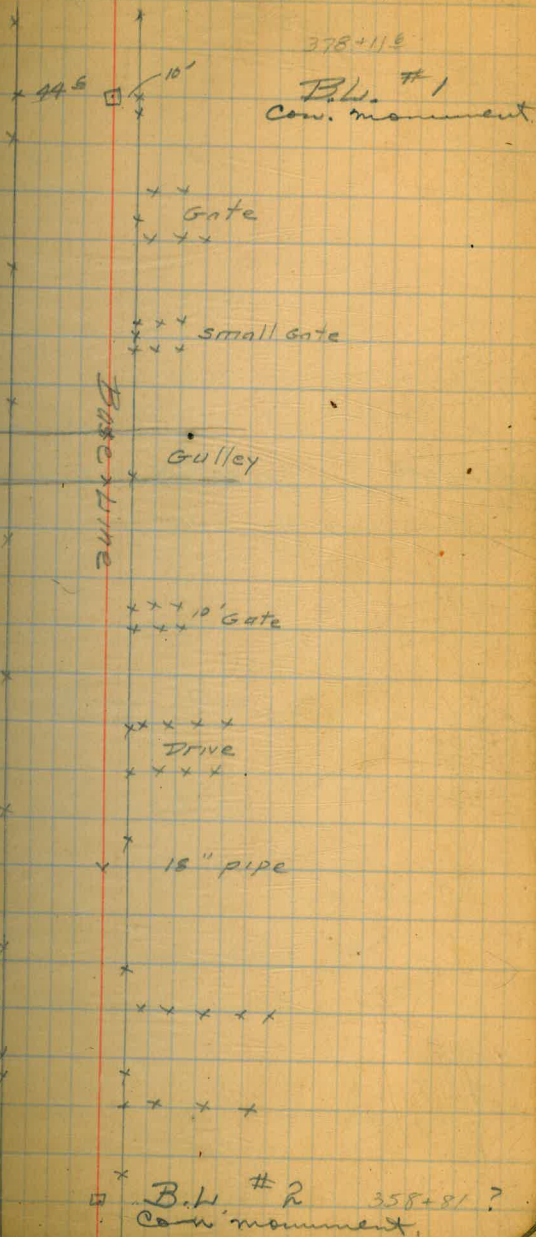 378+11⁶
44⁶ 10' B.L. #1
Con. monument
Gate
small Gate
Base Line
Gulley
10' Gate
Drive
18" pipe
B.L #2 358+81 ?
Con monument.